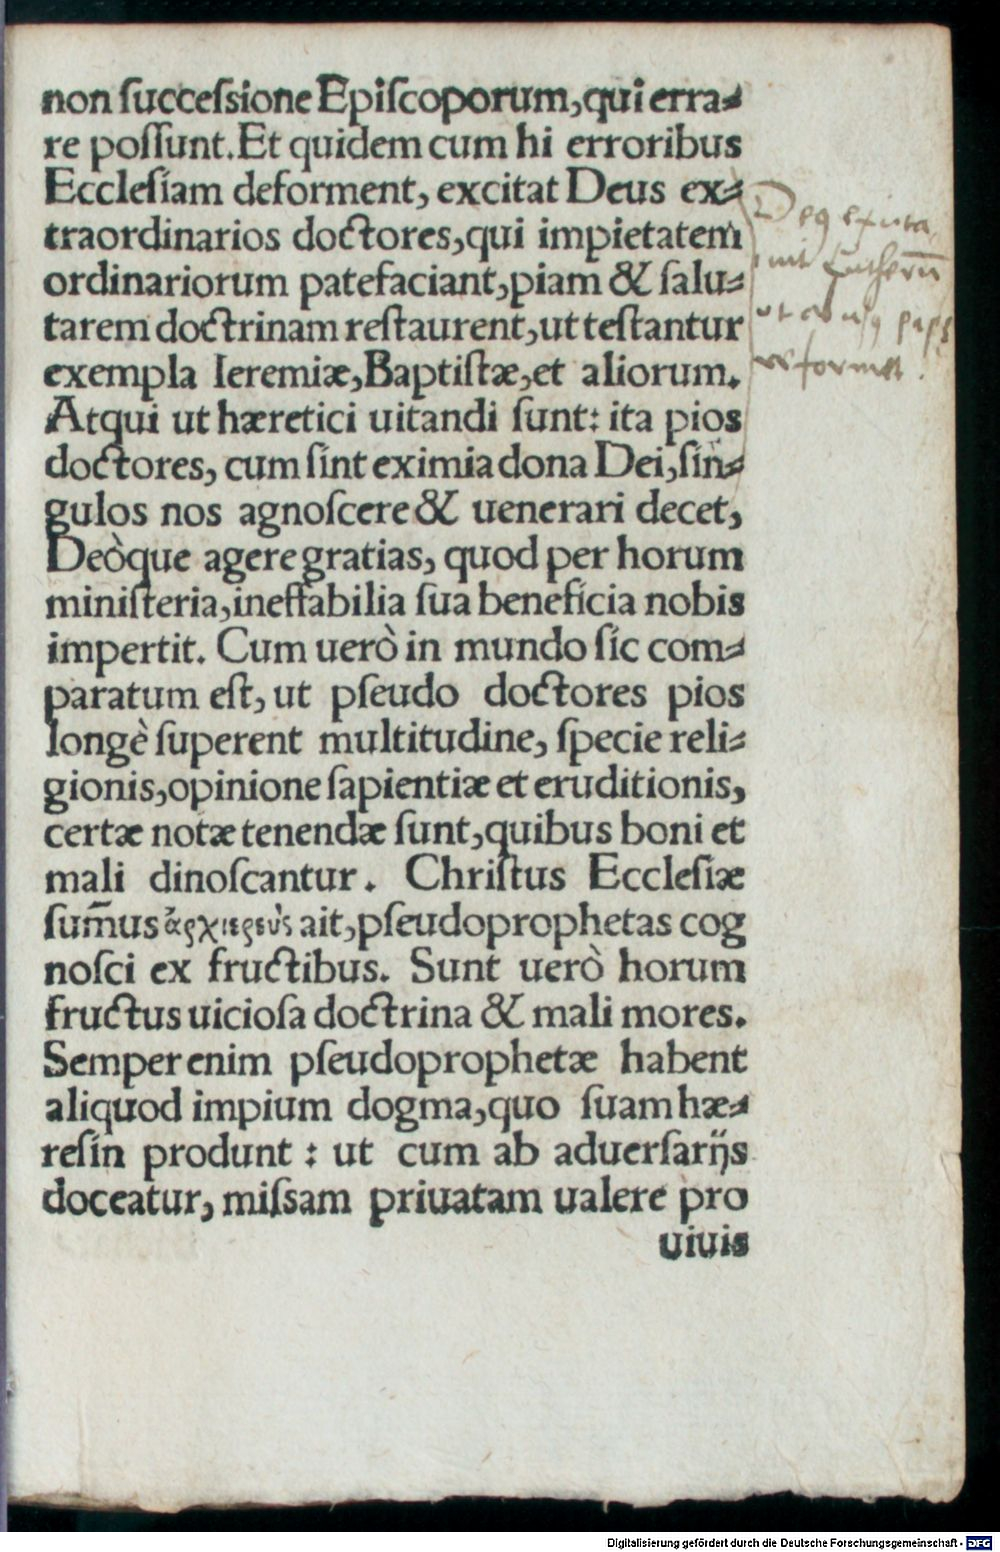 non ſucceſsione Epiſcoporum, qui erra⸗
re poſſunt. Et quidem cum hi erroribus
Eccleſiam deforment, excitat Deus ex⸗
traordinarios doctores, qui impietatem
ordinariorum patefaciant, piam & ſalu⸗
tarem doctrinam reſtaurent, ut teſtantur
exempla Ieremiæ, Baptiſtæ, et aliorum.
Atqui ut hæretici uitandi ſunt: ita pios
doctores, cum ſint eximia dona Dei, ſin⸗
gulos nos agnoſcere & uenerari decet,
Deòque agere gratias, quod per horum
miniſteria, ineffabilia ſua beneficia nobis
impertit. Cum uerò in mundo ſic com⸗
paratum eſt, ut pſeudo doctores pios
longè ſuperent multitudine, ſpecie reli⸗
gionis, opinione ſapientiæ et eruditionis,
certæ notæ tenendæ ſunt, quibus boni et
mali dinoſcantur. Chriſtus Eccleſiæ
ſum̄us ἀρχιερεὺς ait, pſeudoprophetas cog
noſci ex fructibus. Sunt uerò horum
fructus uicioſa doctrina & mali mores.
Semper enim pſeudoprophetæ habent
aliquod impium dogma, quo ſuam hæ⸗
reſin produnt: ut cum ab aduerſarijs
doceatur, miſsam priuatam ualere pro
uiuis
Lutherū
Digitalisierung gefördert durch die Deutsche Forschungsgemeinschaft - DFG